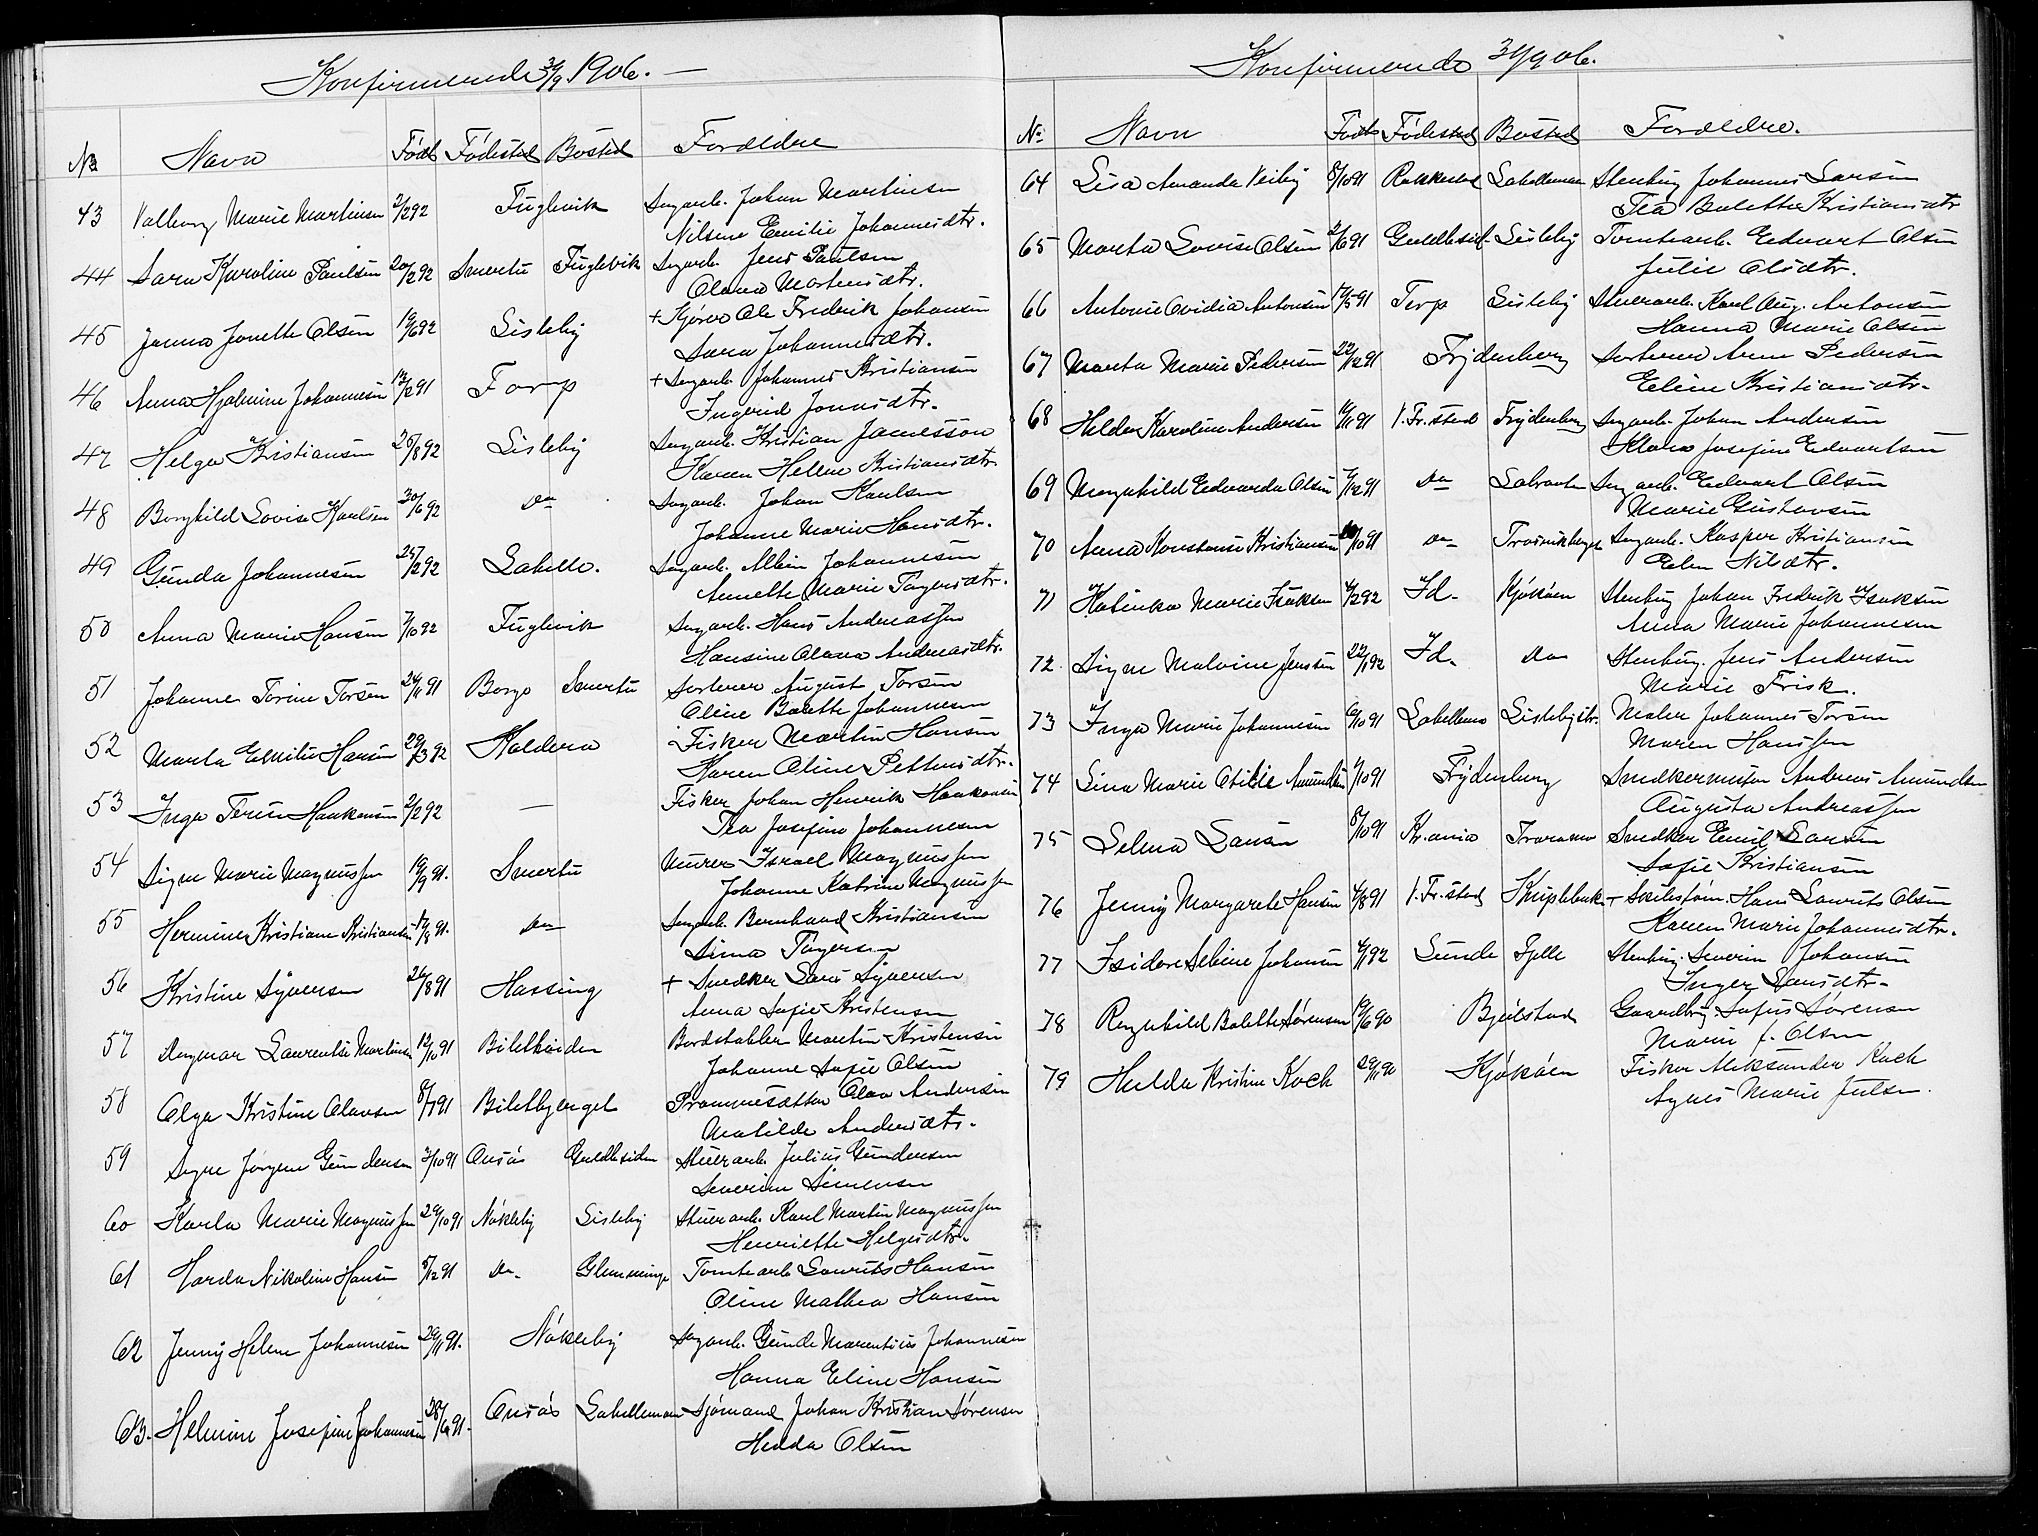 Konfirmerede 30/9 1906. —
No Navn Født Fødested Bosted Forældre
43 Valborg Marie Martinsen 2/2 92 Fuglevik Sagarb. Johan Martinsen
Nilsine Emilie Johannesdtr.
44 Sara Karoline Paulsen 20/2 92 Smertu Fuglevik Sagarb. Jens Paulsen
Olava Mortensdtr.
45 Janna Jonette Olsen 19/6 92 Lisleby + Kjører Ole Fredrik Johansen
Sara Johannesdtr.
46 Anna Hjalmine Johannesen 13/12 91 Torp + Sagarb. Johannes Kristiansen
Ingerid Jonesdtr.
47 Helga Kristiansen 25/8 92 Lisleby Sagarb. Kristian Jamesson
Karen Helene Kristiansdtr
48 Borghild Lovise Karlsen 30/6 92 Do Sagarb. Johan Karlsen
Johanne Marie Hansdtr.
49 Gunda Johannesen 25/2 92 Labella. Sagarb. Albin Johannesen
Annette Marie Tagesdtr.
50 Anna Marie Hansen 7/10 92 Fuglevik Sagarb. Hans Andreassen
Hansine Olava Andreasdtr.
51 Johanne Torine Torsen 24/11 91 Borge Smertu Sorterer August Torsen
Oline Bolette Johannesen
52 Marta Emilie Hansen 29/3 92 Kaldera Fisker Martin Hansen
Karen Oline Pettersdtr.
53 Inga Terese Haakonsen 2/2 92 — Fisker Johan Henrik Haakonsen
Tea Josefine Johannesen
54 Signe Marie Magnussen 19/9 91. Smertu Murer Israel Magnussen
Johanne Katrine Magnussen
55 Hermine Kristiane Kristiansen 14/8 91. Do Sagarb. Bernhard Kristiansen
Sina Tagesen
56 Kristine Syversen 24/8 91 Hassing + Snedker Lars Syversen
Anna Sofie Kristensen
57 Dagmar Laurentse Martinsen 13/10 91 Biletheiden Bordstabler Martin Kristensen
Johanne Sofie Olsen
58 Olga Kristine Olavsen 8/7 91 Biletbjerget Prammesætter Olav Andersen
Matilde Andersdtr.
59 Signe Jørgine Gundersen 3/10 91 Onsø Guldbesiden Stuerarb. Julius Gundersen
Severine Simensen
60 Karla Marie Magnussen 29/10 91 Nøkleby Lisleby Stuerarb. Karl Martin Magnussen
Henriette Helgesdtr.
61 Harda Nikoline Hansen 5/12 91 Do. Glemminge Tomtearb. Laurits Hansen
Oline Mathea Hansen
62 Jenny Helene Johannesen 29/11 91. Nøkleby Sagarb. Gunde Marentius Johannesen
Hanna Eline Hansen
63. Helmine Josefine Johannesen 28/6 91. Onsø Labellemoen Sjømand Johan Kristian Sørensen
Hedda Olsen
Konfirmerede 30/9 06.
No Navn Født Fødested Bosted Forældre.
64 Lisa Amanda Veiby 8/10 91 Rakkestad Labellemoen Stenhug Johannes Larsen
Tea Bolette Kristiansdtr
65 Marta Lovise Olsen 2/6 91 Guldbesid. Lisleby Tomtearb. Edvart Olsen
Julie Olsdtr.
66 Antonie Ovidia Antonsen 17/5 91 Torp Lisleby Stuerarb. Karl Aug. Antonsen
Hanna Marie Olsen
67 Marta Marie Pedersen 22/12 91 Frydenberg Sorterer Arne Pedersen
Eline Kristiansdtr.
68 Helda Karoline Andersen 16/11 91 V. Fr.stad Frydenberg Sagarb. Johan Andersen
Klara Josefine Edvartsen
69 Magnhild Edvarda Olsen 7/12 91 Do Sagarb. Edvart Olsen
Marie Gustavsen
70 Anna Konstanse Kristiansen /10 91 Do Sagarb. Kasper Kristiansen
Elen Nilsdtr.
71 Katinka Marie Isaksen 4/2 92 Id. Kjøkøen Stenhug Johan Fredrik Isaksen
Anna Marie Johannesen
72. Signe Malvine Jensen 22/1 92 Id. Do Stenhug. Jens Andersen
Marie Frisk.
73 Inga Marie Johannesen 10/10 91 Labellemo Lislebystr. Maler Johannes Torsen
Maren Hanssen
74 Lina Marie Otilie Amundsen 9/10 91 Frydenberg Snedkermester Andreas Amundsen
Augusta Andreassen
75 Selma Larsen 8/10 91 Kr.ania Traraveien Snedker Emil Larsen
Sofie Kristiansen
76 Jenny Margarete Hansen 4/8 91 V. Fr.stad Kniplebak. + Hans Laurits Olsen
Karen Marie Johannesdtr.
77 Isidore Selvine Johansen 4/1 92 Sunde Gjelle Stenhug. Severin Johansen
Inger Larsdtr.
78 Ragnhild Bolette Sørensen 19/6 90 Bjølstad Gaardbr. Sofus Sørensen
Marie f. Olsen
79 Hulda Kristine Koch 29/11 90 Kjøkøen Fisker Aleksander Koch
Agnes Marie Julsen.